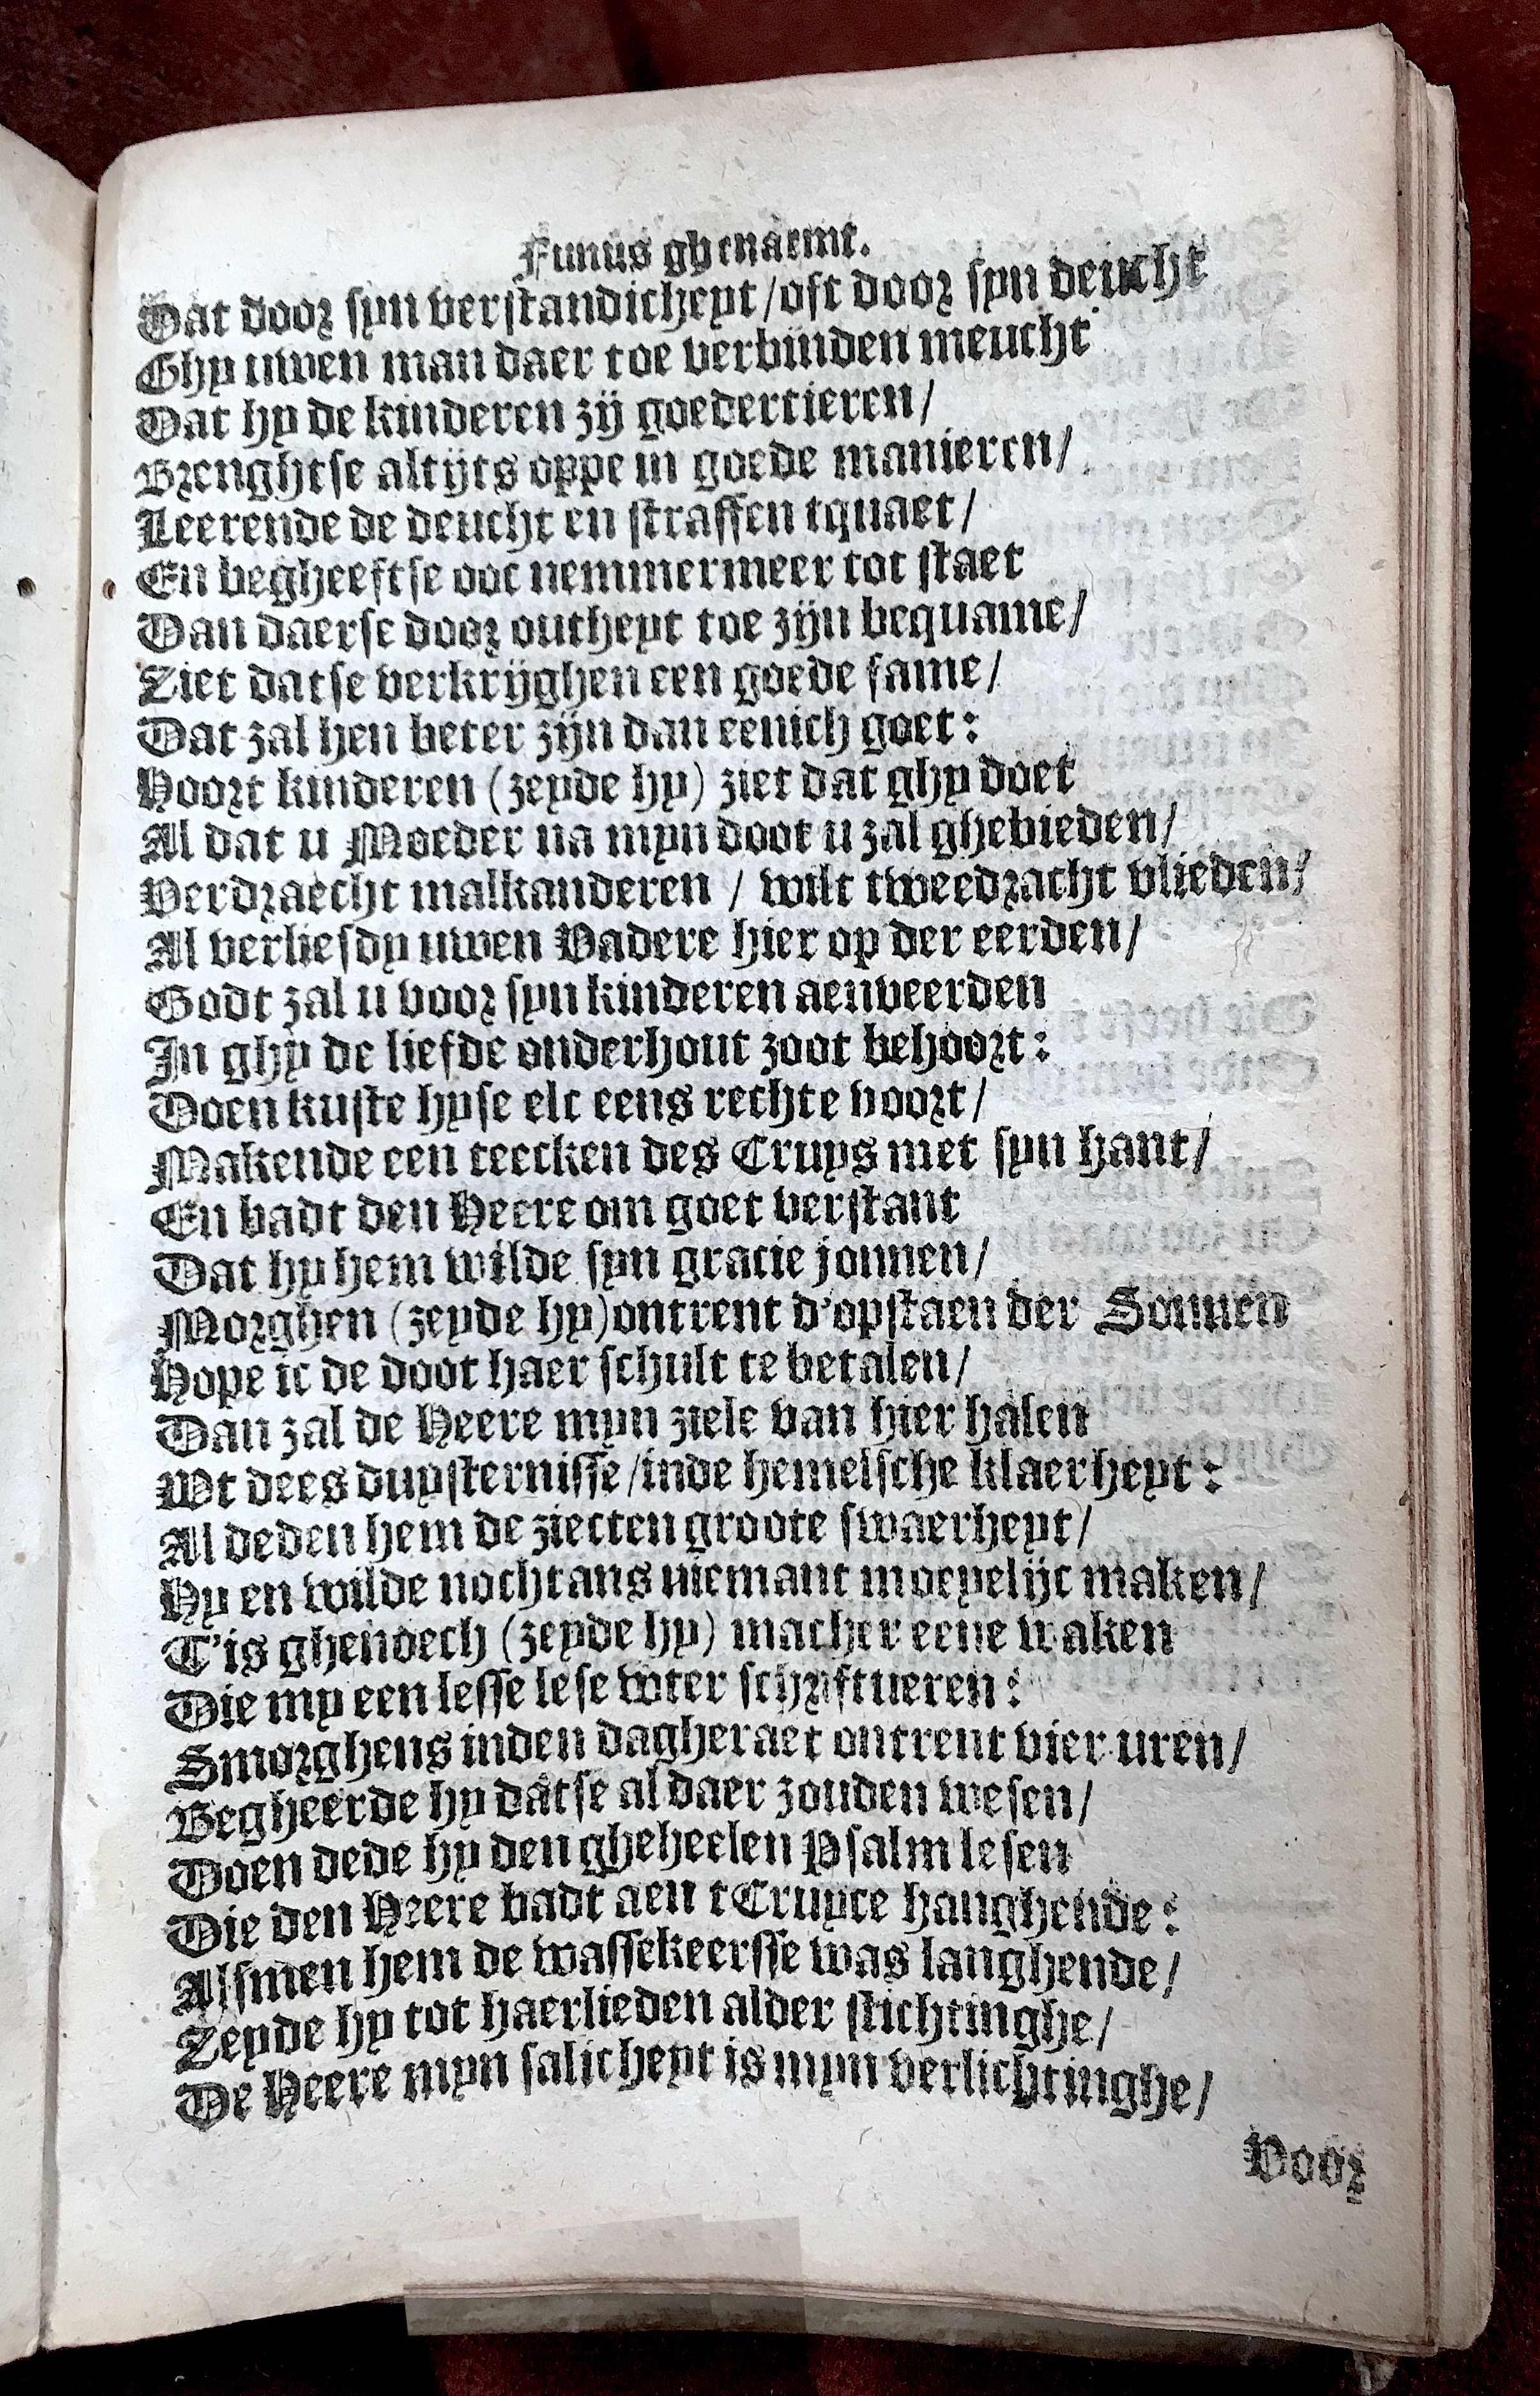 Funus ghenaemt.
Dat door syn verstandicheyt/oft door syn deucht
Ghy uwen man daer toe verbinden meucht
Dat hy de kinderen zij goedertieren/
Brenghtse altijts oppe in goede manieren/
Leerende de deucht en straffen tquaet/
En begheeftse ooc nemmermeer tot staet
Dan daerse door outheyt toe zijn bequame/
Ziet datse verkrijghen een goede fame/
Dat zal hen beter zijn dan eenich goet:
Hoort kinderen (zeyde hy) ziet dat ghy doet
Al dat u Moeder na myn doot u zal ghebieden/
Verdraecht malkanderen / wilt tweedracht vlieden/
Al verliesdy uwen Vadere hier op der eerden/
Godt zal u voor syn kinderen aenveerden
In ghy de liefde onderhout zoot behoort:
Doen kuste hyse elc eens rechte voort/
Makende een teecken des Cruys met syn hant/
En badt den Heere om goet verstant
Dat hy hem wilde syn gracie jonnen/
Morghen (zeyde hy) ontrent d'opstaen der Sonnen
Hope ic de doot haer schult te betalen/
Dan zal de Heere myn ziele van hier halen
Wt dees duysternisse/inde hemelsche klaerheyt:
Al deden hem de ziecten groote swaerheyt/
Hy en wilde nochtans niemant moeyelijc maken/
T'is ghenoech (zeyde hy) macher eene waken
Die my een lesse lese wter schriftueren:
Smorghens inden dagheraet ontrent vier uren/
Begheerde hy datse aldaer zouden wesen/
Doen dede hy den gheheelen Psalm lesen
Die den Heere badt aen tCruyce hanghende:
Alsmen hem de wassekeersse was langhende/
Zeyde hy tot haerlieden alder stichtinghe/
De Heere myn salicheyt is myn verlichtinghe/
Voor